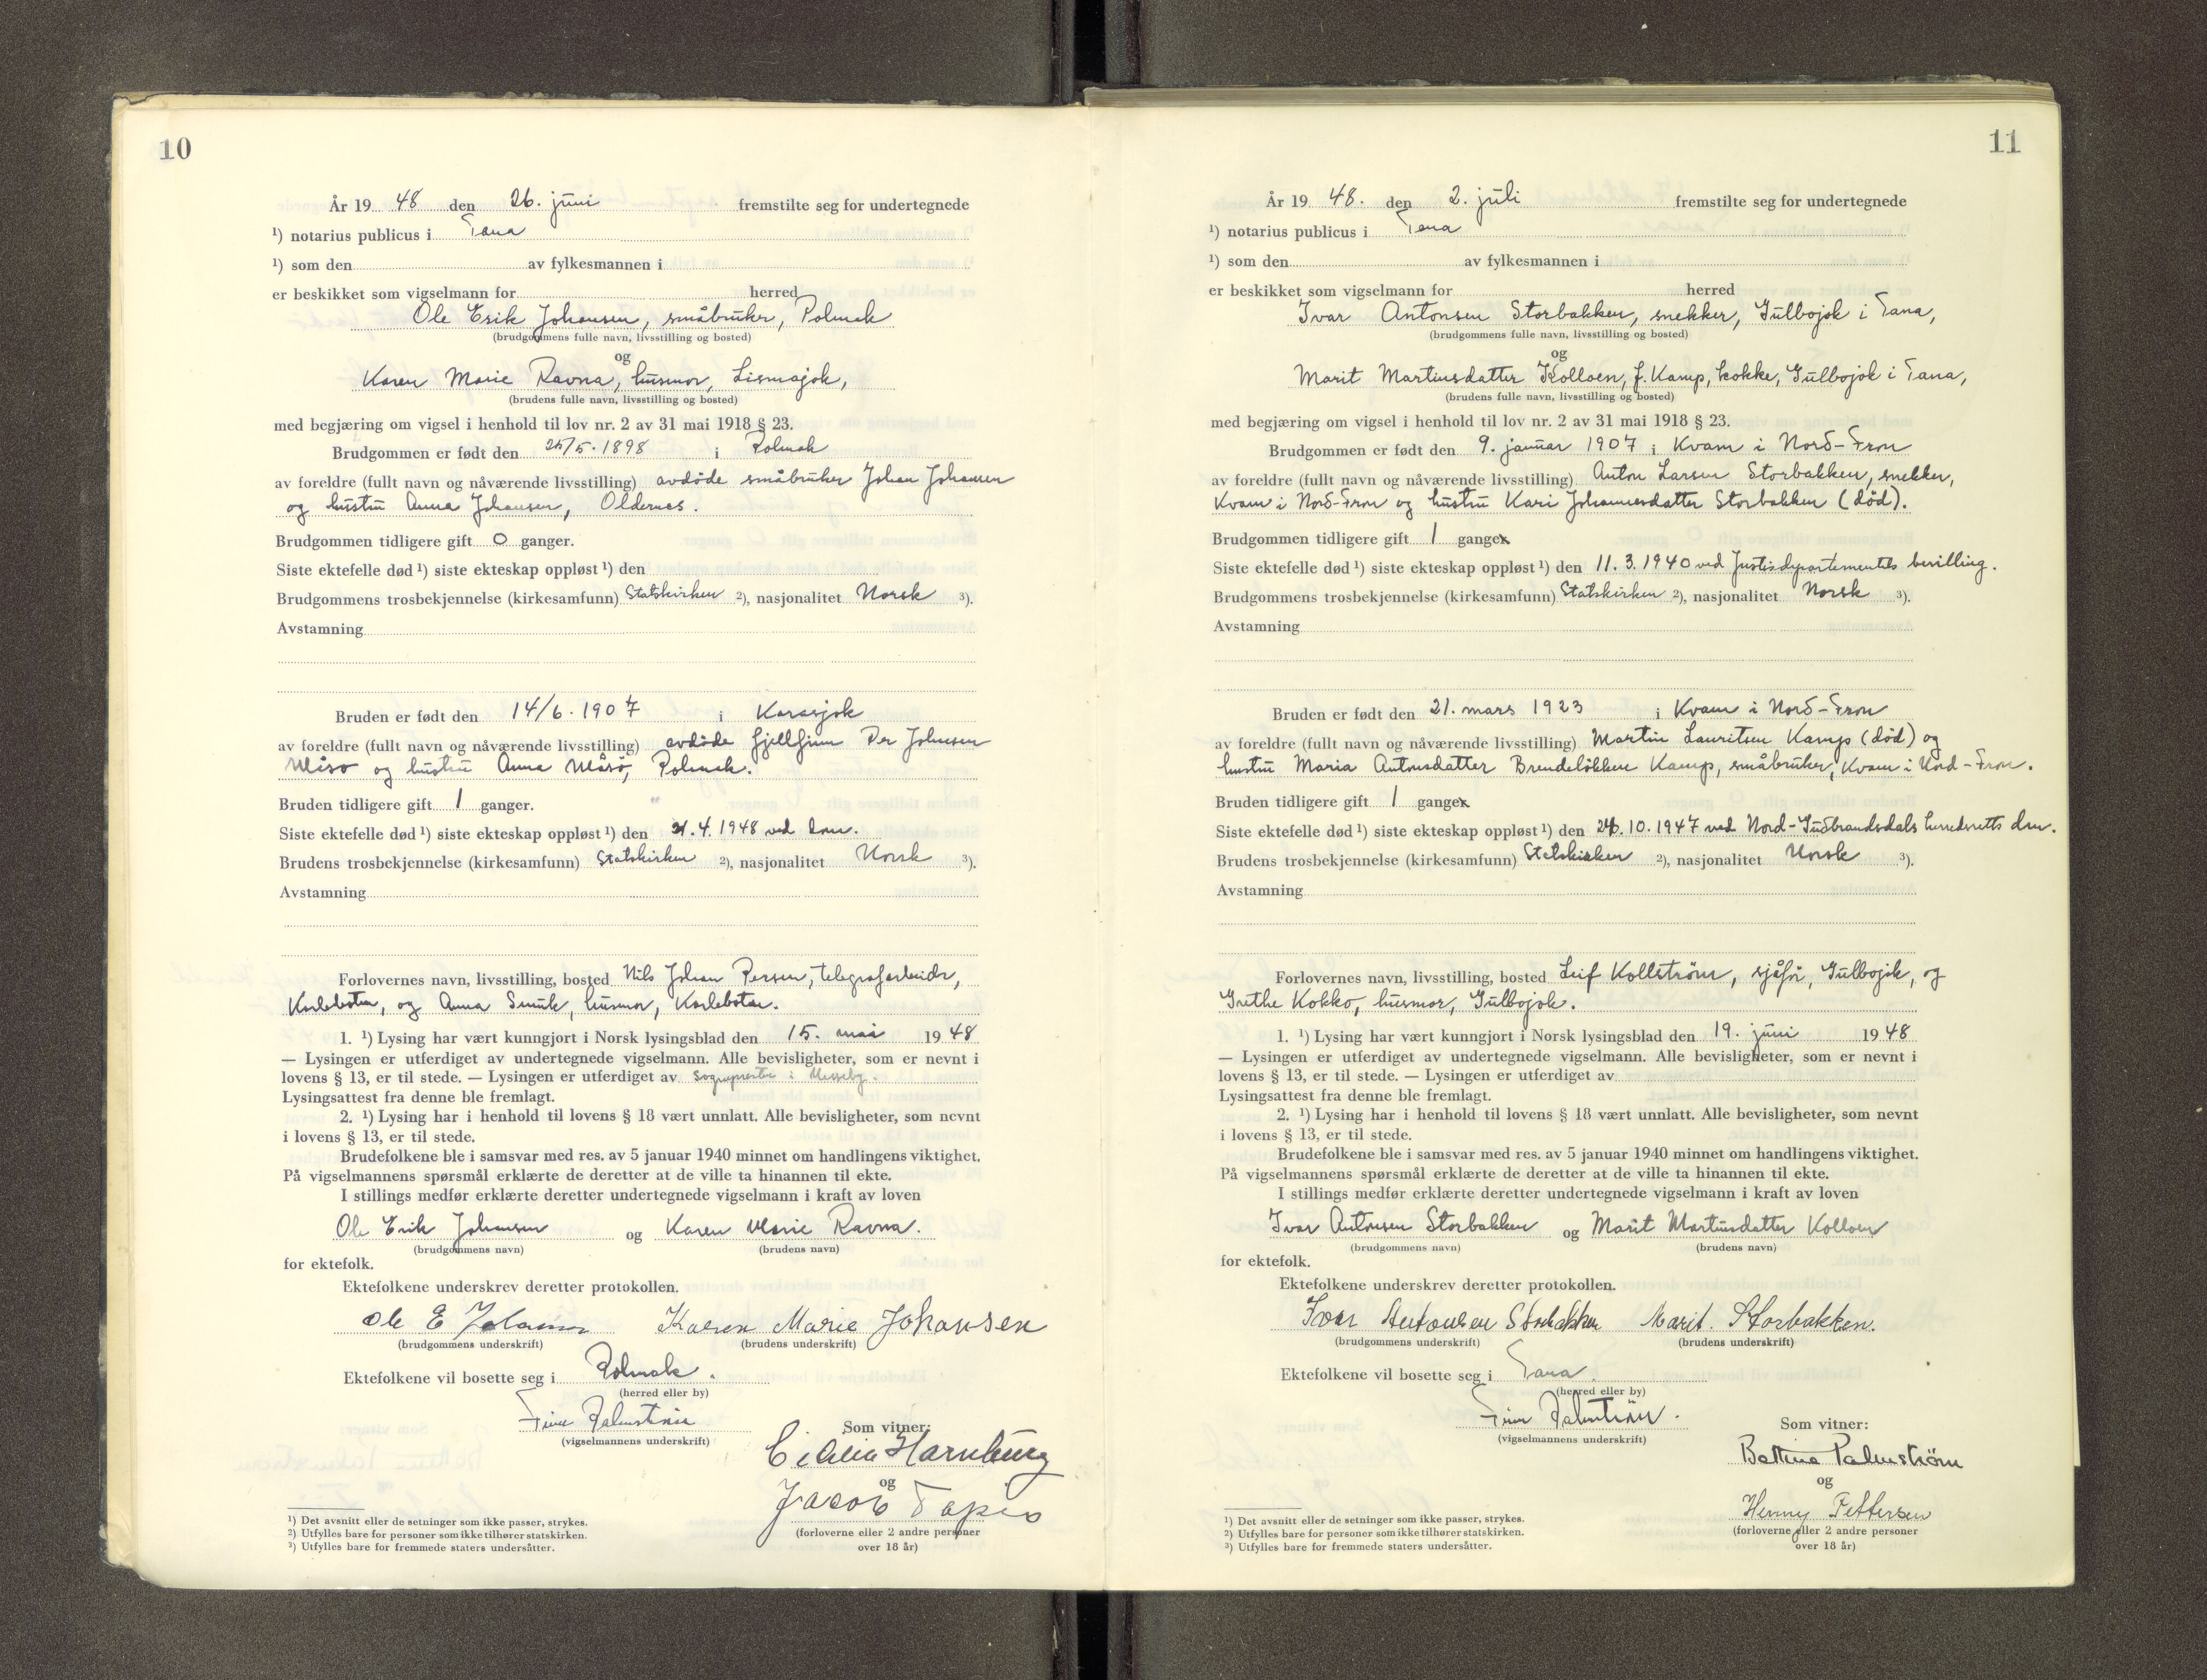 10
År 19 48 den 26. juni fremstilte seg for undertegnede
¹) notarius publicus i Tana
¹) som den av fylkesmannen i
er beskikket som vigselmann for herred
Ole Erik Johansen, småbruker, Polmak
(brudgommens fulle navn, livsstilling og bosted)
og
Karen Marie Ravna, husmor, Lismajok,
(brudens fulle navn, livsstilling og bosted)
med begjæring om vigsel i henhold til lov nr. 2 av 31 mai 1918 § 23.
Brudgommen er født den 25/5. 1898 i Polmak
av foreldre (fullt navn og nåværende livsstilling) avdøde småbruker Johan Johansen
og hustru Anna Johansen, Oldernes.
Brudgommen tidligere gift 0 ganger.
Siste ektefelle død ¹) siste ekteskap oppløst ¹) den
Brudgommens trosbekjennelse (kirkesamfunn) Statskirken ²), nasjonalitet Norsk ³).
Avstamning
Bruden er født den 14/6. 1907 i Karasjok
av foreldre (fullt navn og nåværende livsstilling) avdøde fjellfinn Per Johnsen
Måsø og hustru Anna Måsø, Polmak.
Bruden tidligere gift 1 ganger.
Siste ektefelle død ¹) siste ekteskap oppløst ¹) den 21. 4. 1948 ved dom.
Brudens trosbekjennelse (kirkesamfunn) Statskirken ²), nasjonalitet Norsk ³).
Avstamning
Forlovernes navn, livsstilling, bosted Nils Johan Persen, telegrafarbeider,
Karlebotn, og Anna Smuk, husmor, Karlebotn.
1. ¹) Lysing har vært kunngjort i Norsk lysingsblad den 15. mai 19 48
— Lysingen er utferdiget av undertegnede vigselmann. Alle bevisligheter, som er nevnt i
lovens § 13, er til stede. — Lysingen er utferdiget av sognepresten i Nesseby.
Lysingsattest fra denne ble fremlagt.
2. ¹) Lysing har i henhold til lovens § 18 vært unnlatt. Alle bevisligheter, som nevnt
i lovens § 13, er til stede.
Brudefolkene ble i samsvar med res. av 5 januar 1940 minnet om handlingens viktighet.
På vigselmannens spørsmål erklærte de deretter at de ville ta hinannen til ekte.
I stillings medfør erklærte deretter undertegnede vigselmann i kraft av loven
Ole Erik Johansen og Karen Marie Ravna.
(brudgommens navn) (brudens navn)
for ektefolk.
Ektefolkene underskrev deretter protokollen.
Ole E Johansen Karen Marie Johansen
(brudgommens underskrift) (brudens underskrift)
Ektefolkene vil bosette seg i Polmak.
(herred eller by)
Finn Palmstrøm
(vigselmannens underskrift)
Som vitner:
Cecilia Harnburg
og
Jacob Tapio
(forloverne eller 2 andre personer
over 18 år)
¹) Det avsnitt eller de setninger som ikke passer, strykes.
²) Utfylles bare for personer som ikke tilhører statskirken.
³) Utfylles bare for fremmede staters undersåtter.
11
År 19 48. den 2. juli fremstilte seg for undertegnede
¹) notarius publicus i Tana
¹) som den av fylkesmannen i
er beskikket som vigselmann for herred
Ivar Antonsen Storbakken, snekker, Gulbojok i Tana,
(brudgommens fulle navn, livsstilling og bosted)
og
Marit Martinsdatter Kolloen, f. Kamp, kokke, Gulbojok i Tana,
(brudens fulle navn, livsstilling og bosted)
med begjæring om vigsel i henhold til lov nr. 2 av 31 mai 1918 § 23.
Brudgommen er født den 9. januar 1907 i Kvam i Nord-Fron
av foreldre (fullt navn og nåværende livsstilling) Anton Larsen Storbakken, snekker,
Kvam i Nord-Fron og hustru Kari Johannesdatter Storbakken (død).
Brudgommen tidligere gift 1 ganger
Siste ektefelle død ¹) siste ekteskap oppløst ¹) den 11. 3. 1940 ved Justisdepartementets bevilling.
Brudgommens trosbekjennelse (kirkesamfunn) Statskirken ²), nasjonalitet Norsk ³).
Avstamning
Bruden er født den 21. mars 1923 i Kvam i Nord-Fron
av foreldre (fullt navn og nåværende livsstilling) Martin Lauritsen Kamp (død) og
hustru Maria Antonsdatter Brendeløkken Kamp, småbruker, Kvam i Nord-Fron.
Bruden tidligere gift 1 ganger
Siste ektefelle død ¹) siste ekteskap oppløst ¹) den 24. 10. 1947 ved Nord-Gudbrandsdals herredsretts dom.
Brudens trosbekjennelse (kirkesamfunn) Statskirken ²), nasjonalitet Norsk ³).
Avstamning
Forlovernes navn, livsstilling, bosted Leif Kollstrøm, sjåfør, Gulbojok, og
Grethe Kokko, husmor, Gulbojok.
1. ¹) Lysing har vært kunngjort i Norsk lysingsblad den 19. juni 19 48
— Lysingen er utferdiget av undertegnede vigselmann. Alle bevisligheter, som er nevnt i
lovens § 13, er til stede. — Lysingen er utferdiget av
Lysingsattest fra denne ble fremlagt.
2. ¹) Lysing har i henhold til lovens § 18 vært unnlatt. Alle bevisligheter, som nevnt
i lovens § 13, er til stede.
Brudefolkene ble i samsvar med res. av 5 januar 1940 minnet om handlingens viktighet.
På vigselmannens spørsmål erklærte de deretter at de ville ta hinannen til ekte.
I stillings medfør erklærte deretter undertegnede vigselmann i kraft av loven
Ivar Antonsen Storbakken og Marit Martinsdatter Kolloen
(brudgommens navn) (brudens navn)
for ektefolk.
Ektefolkene underskrev deretter protokollen.
Ivar Antonsen Storbakken Marit. Storbakken.
(brudgommens underskrift) (brudens underskrift)
Ektefolkene vil bosette seg i Tana.
(herred eller by)
Finn Palmstrøm.
(vigselmannens underskrift)
Som vitner:
Bettina Palmstrøm
og
Henny Pettersen
(forloverne eller 2 andre personer
over 18 år)
¹) Det avsnitt eller de setninger som ikke passer, strykes.
²) Utfylles bare for personer som ikke tilhører statskirken.
³) Utfylles bare for fremmede staters undersåtter.